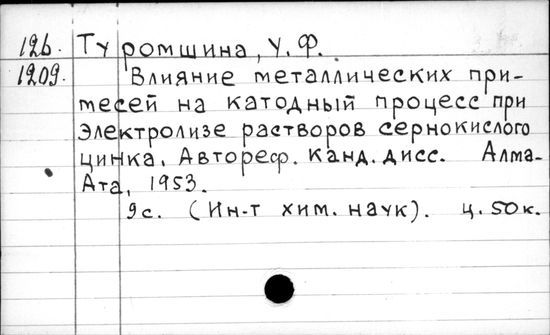 12б. Туромшина, У. Ф.
1209. Влияние металлических при-
месей на катодный процесс при
электролизе растворов сернокислого
цинка. Автореф. канд. дисс. Алма-
Ата, 1953.
9с. (Ин-т хим. наук). ц. 50к.